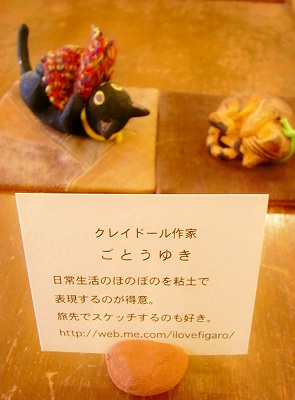 クレイドール作家
ごとうゆき
日常生活のほのぼのを粘土で
表現するのが得意。
旅先でスケッチするのも好き。
http://web.me.com/ilovefigaro/